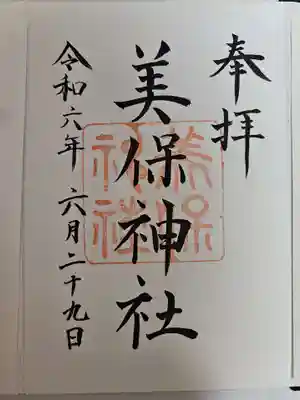 奉拝
美保神社
美保神社
令和六年 六月二十九日